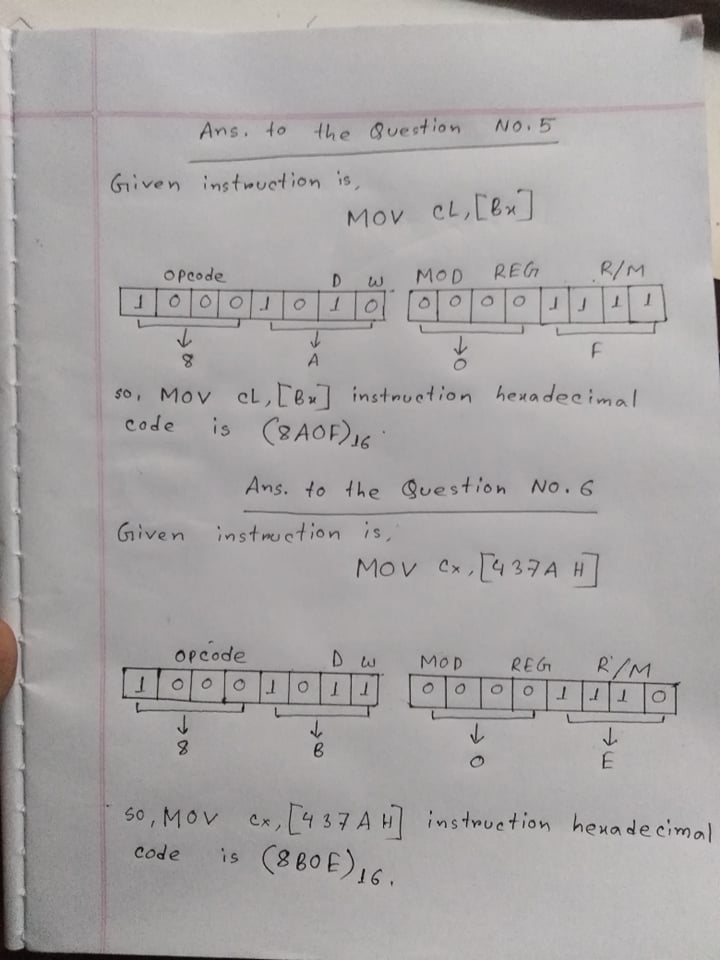 Ans. to the Question NO.5
Given instruction is,
MOV CL,[Bx]
opcode D W MOD REG R/M
1 0 0 0 1 0 1 0 0 0 0 0 1 1 1 1
8 A 0 F
so, MOV CL,[Bx] instruction hexadecimal
code is (8A0F)16.
Ans. to the Question NO.6
Given instruction is,
MOV Cx,[437A H]
opcode D W MOD REG R/M
1 0 0 0 1 0 1 1 0 0 0 0 1 1 1 0
8 B 0 E
so, MOV Cx,[437A H] instruction hexadecimal
code is (8B0E)16.